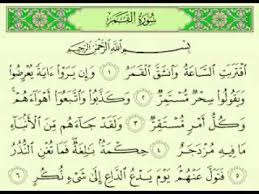 سُورَةُ القَمَرِ
بِسْمِ اللَّهِ الرَّحْمَٰنِ الرَّحِيمِ
اقْتَرَبَتِ السَّاعَةُ وَانشَقَّ الْقَمَرُ ١ وَإِن يَرَوْا ءَايَةً يُعْرِضُوا
وَيَقُولُوا سِحْرٌ مُّسْتَمِرٌّ ٢ وَكَذَّبُوا وَاتَّبَعُوا أَهْوَاءَهُمْ
وَكُلُّ أَمْرٍ مُّسْتَقِرٌّ ٣ وَلَقَدْ جَاءَهُم مِّنَ الْأَنبَاءِ
مَا فِيهِ مُزْدَجَرٌ ٤ حِكْمَةٌ بَالِغَةٌ فَمَا تُغْنِ النُّذُرُ
٥ فَتَوَلَّ عَنْهُمْ يَوْمَ يَدْعُ الدَّاعِ إِلَىٰ شَيْءٍ نُّكُرٍ ٦